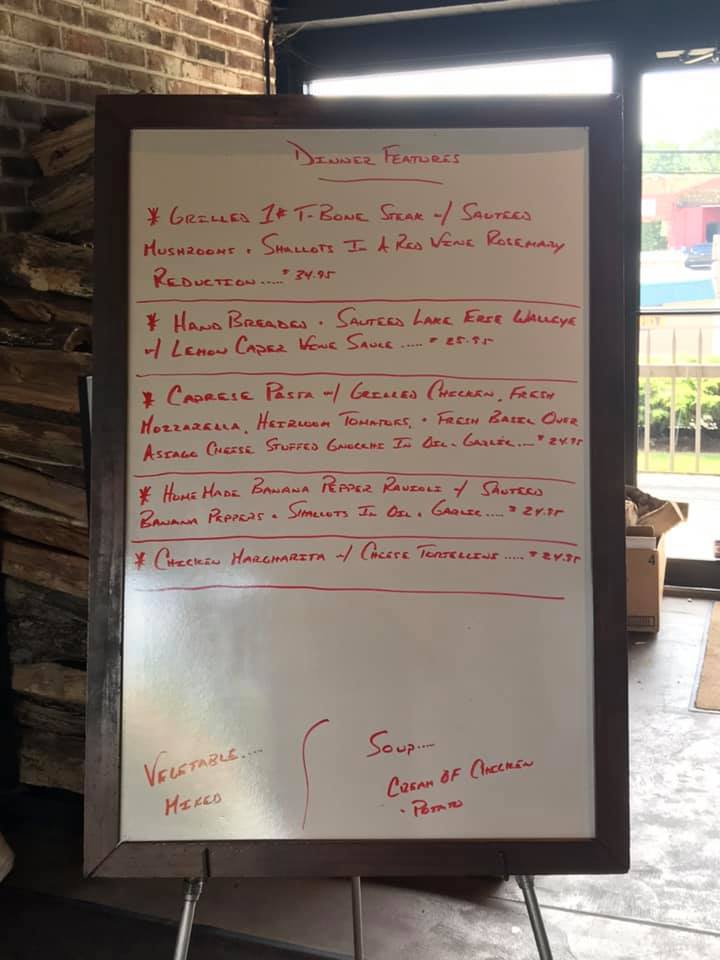 Dinner Features
* Grilled 1# T-Bone Steak w/ Sauteed
Mushrooms + Shallots In A Red Wine Rosemary
Reduction..... $34.95
* Hand Breaded + Sauteed Lake Erie Walleye
w/ Lemon Caper Wine Sauce ..... $25.95
* Caprese Pasta w/ Grilled Chicken, Fresh
Mozzarella, Heirloom Tomatoes, + Fresh Basil Over
Asiago Cheese Stuffed Gnocchi In Oil + Garlic.... $24.95
* Home Made Banana Pepper Ravioli w/ Sauteed
Banana Peppers + Shallots In Oil + Garlic..... $24.95
* Chicken Margharita w/ Cheese Tortellini ..... $24.95
Vegetable....
Mixed
Soup....
Cream Of Chicken
+ Potato
4